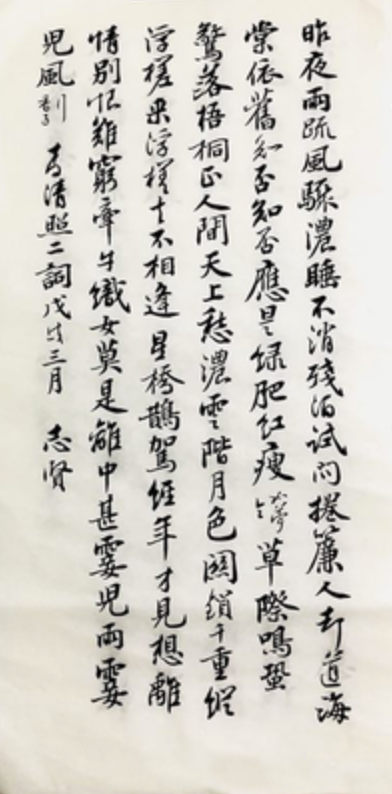 昨夜雨疏風驟濃睡不消殘酒試問捲簾人却道海
棠依舊知否知否應是绿肥红瘦如夢令草際鳴蛩
驚落梧桐正人間天上愁濃雲階月色關鎖千重縱
浮槎来浮槎去不相逢星橋鵲駕經年才見想離
情別恨難窮牽牛織女莫是離中甚霎兒雨霎
兒風行香子 李清照二詞戊戌三月 志贤